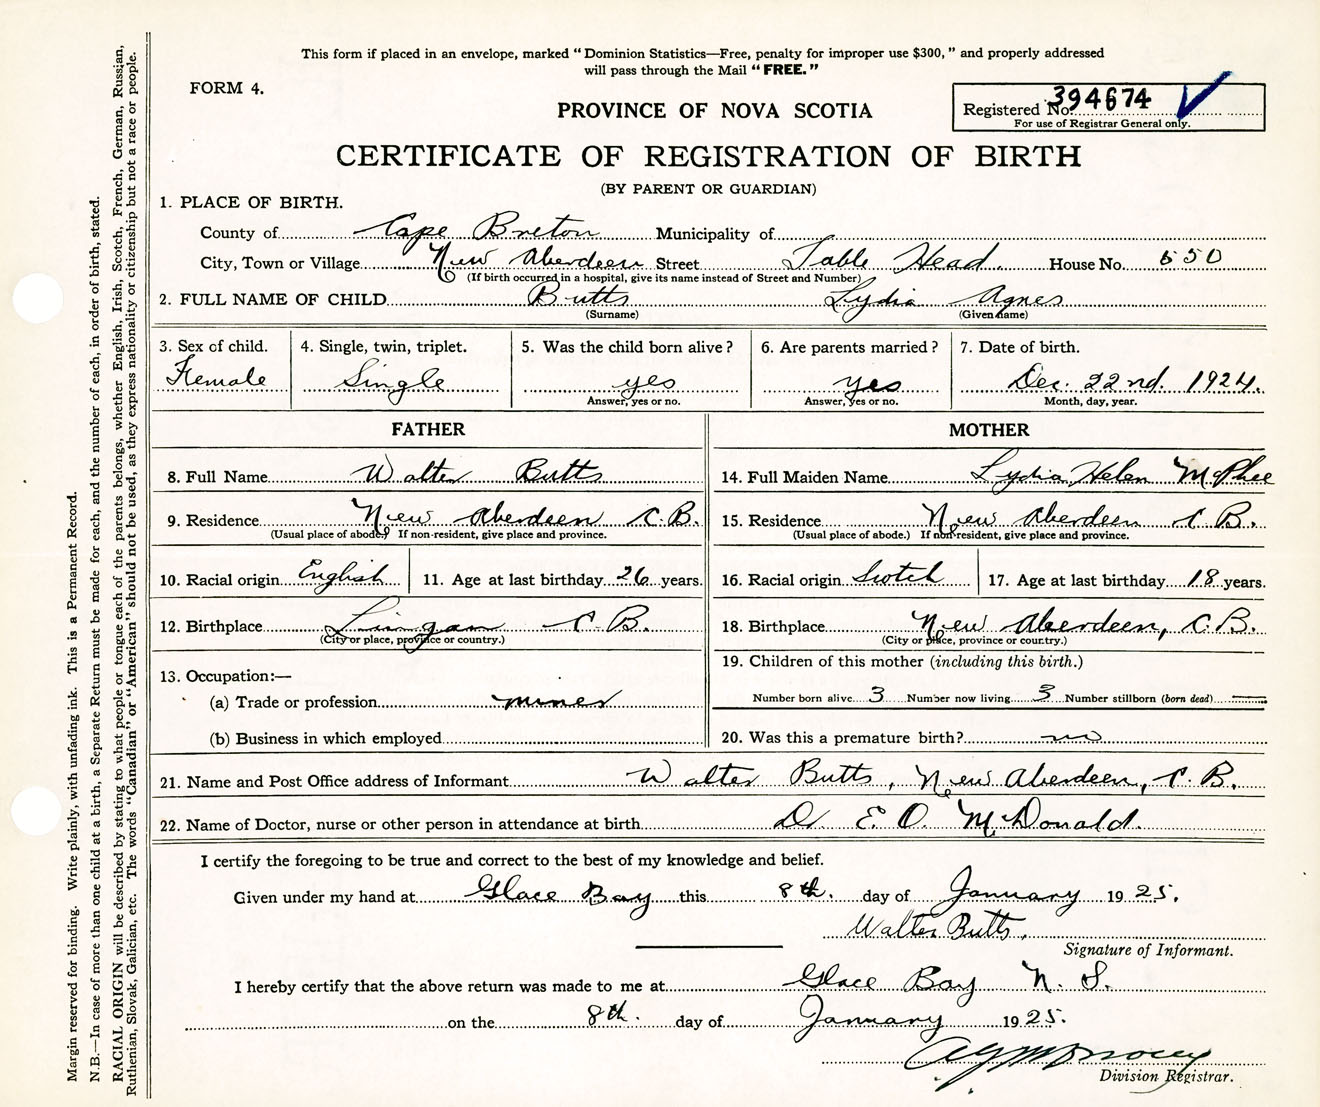 This form if placed in an envelope, marked "Dominion Statistics—Free, penalty for improper use $300," and properly addressed
will pass through the Mail "FREE."
FORM 4.
PROVINCE OF NOVA SCOTIA
Registered No. 394674
For use of Registrar General only.
CERTIFICATE OF REGISTRATION OF BIRTH
(BY PARENT OR GUARDIAN)
1. PLACE OF BIRTH.
County of Cape Breton Municipality of
City, Town or Village New Aberdeen Street Table Head. House No. 550
(If birth occurred in a hospital, give its name instead of Street and Number)
2. FULL NAME OF CHILD Butts Lydia Agnes
(Surname) (Given name)
3. Sex of child. 4. Single, twin, triplet. 5. Was the child born alive? 6. Are parents married? 7. Date of birth.
Female Single yes yes Dec. 22nd. 1924.
Answer, yes or no. Answer, yes or no. Month, day, year.
FATHER MOTHER
8. Full Name Walter Butts 14. Full Maiden Name Lydia Helen McPhee
9. Residence New Aberdeen C.B. 15. Residence New Aberdeen C.B.
(Usual place of abode.) If non-resident, give place and province. (Usual place of abode.) If non-resident, give place and province.
10. Racial origin English 11. Age at last birthday 26 years. 16. Racial origin Scotch 17. Age at last birthday 18 years.
12. Birthplace Lingan C.B. 18. Birthplace New Aberdeen, C.B.
(City or place, province or country.) (City or place, province or country.)
13. Occupation:— 19. Children of this mother (including this birth.)
(a) Trade or profession miner Number born alive 3 Number now living 3 Number stillborn (born dead)
(b) Business in which employed 20. Was this a premature birth? no
21. Name and Post Office address of Informant Walter Butts, New Aberdeen, C.B.
22. Name of Doctor, nurse or other person in attendance at birth Dr. E. O. McDonald.
I certify the foregoing to be true and correct to the best of my knowledge and belief.
Given under my hand at Glace Bay this 8th. day of January 1925.
Walter Butts.
Signature of Informant.
I hereby certify that the above return was made to me at Glace Bay N.S.
on the 8th. day of January 1925.
Division Registrar.
Margin reserved for binding. Write plainly, with unfading ink. This is a Permanent Record.
N.B.—In case of more than one child at a birth, a Separate Return must be made for each, and the number of each, in order of birth, stated.
RACIAL ORIGIN will be described by stating to what people or tongue each of the parents belongs, whether English, Irish, Scotch, French, German, Russian,
Ruthenian, Slovak, Galician, etc. The words "Canadian" or "American" should not be used, as they express nationality or citizenship but not a race or people.